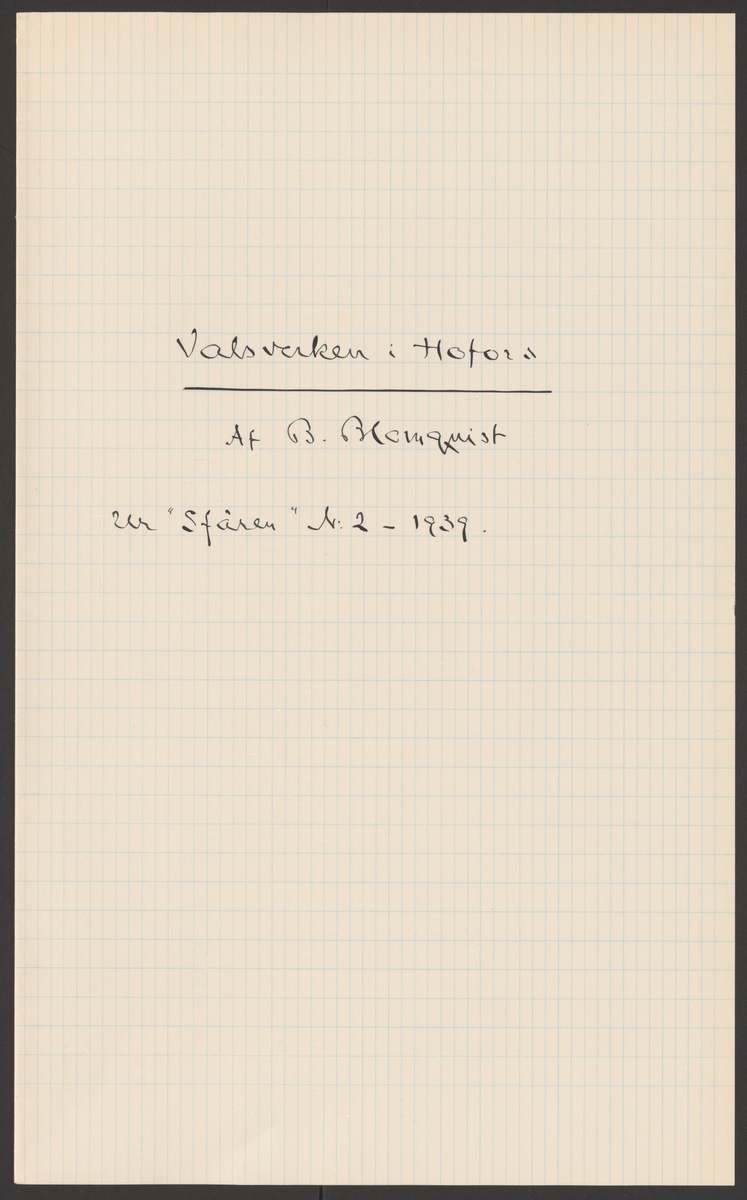 Valsverken i Hofors
Af B. Blomquist
Ur "Sfären" N: 2 - 1939.